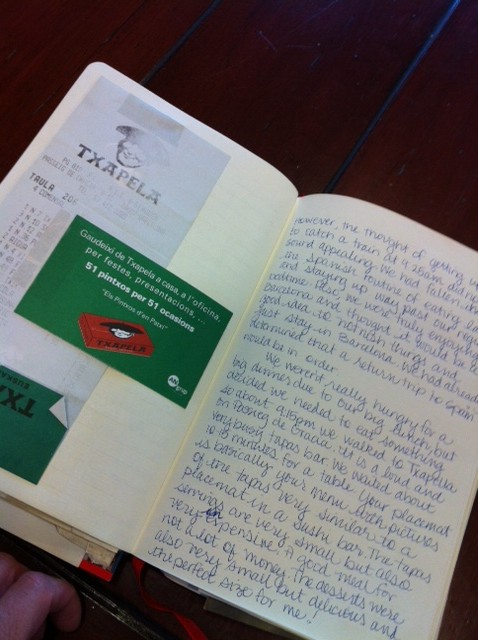 TXAPELA
TAULA 20
Gaudeixi de Txapela a casa, a l'oficina,
per festes, presentacions, ...
51 pintxos per 51 ocasions
"Els Pintxos d'en Patxi"
TXAPELA
AN
grup
TXAPELA
EUSKAL
however, the thought of getting up
to catch a train at 4:25am didn't
sound appealing. We had fallen into
the Spanish routine of eating late
and staying up way past our regular
bedtime. Plus, we were truly enjoying
Barcelona and thought it would be a
good idea to not rush things and
just stay in Barcelona. We had already
determined that a return trip to Spain
would be in order.
We weren't really hungry for a
big dinner due to our big lunch, but
decided we needed to eat something
so about 9:15pm we walked to Txapella
on Passeig de Gracia. It is a loud and
very busy tapas bar. We waited about
10-15 minutes for a table. Your placemat
is basically your menu with pictures
of the tapas very similar to a
placemat in a sushi bar. The tapas
servings are very small but also
very in expensive. A good meal for
not a lot of money. The desserts were
also very small but delicious and
the perfect size for me.